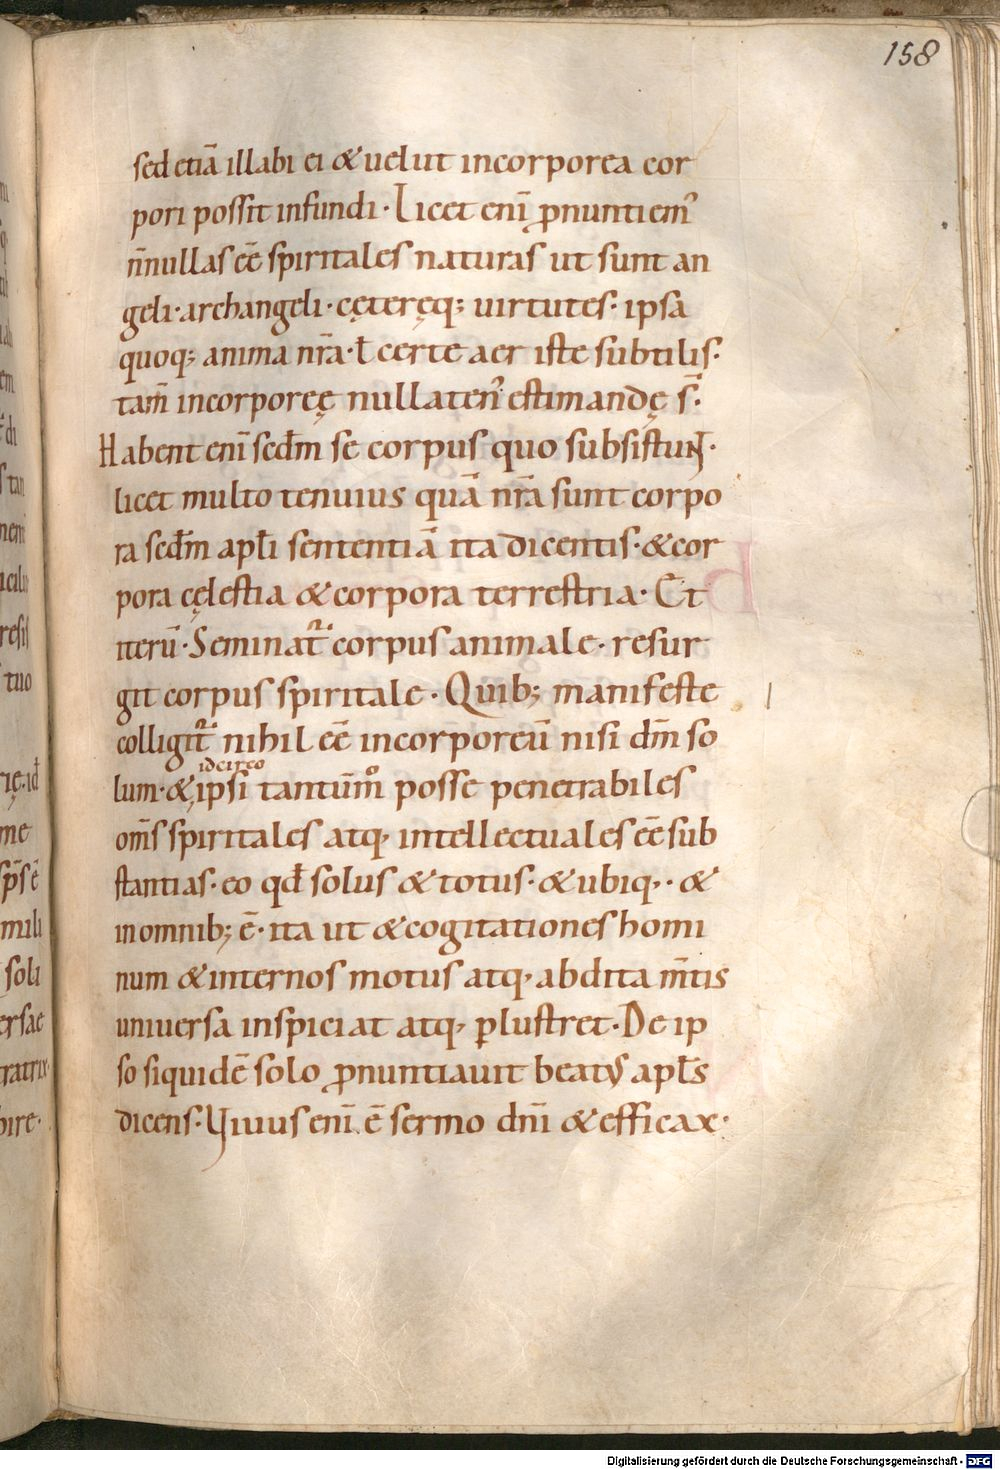 158
sed etiā illabi ei & uelut incorporea cor
pori possit infundi· Licet enī ꝓnuntiem᷒
n̄nullas eē̄ spiritales naturas ut sunt an
geli· archangeli· cętereq; uirtutes· ipsa
quoq; anima nr̄a· ł certe aer iste subtilis·
tam̄ incorporeę nullaten᷒ estimandę s̄·
Habent enī scd̄m se corpus quo subsistunt·
licet multo tenuius quā nr̄a sunt corpo
ra scd̄m apłi sententiā ita dicentis· & cor
pora cęlestia & corpora terrestria· Et
iterū· Seminat᷑ corpus animale· resur
git corpus spiritale· Quib; manifeste
colligit᷑ nihil eē̄ incorporeū nisi dm̄ so
idcirco
lum· & ipsi tantūm̊ posse penetrabiles
om̄s spiritales atq, intellectuales eē̄ sub
stantias· eo qđ solus & totus· & ubiq,· &
in omnib; ē· ita ut & cogitationes homi
num & internos motus atq, abdita m̄tis
uniuersa inspiciat atq, ꝑlustret· De ip
so siquidē solo ꝓnuntiauit beatꝰ apłs
dicens· Viuus enī ē sermo dn̄i & efficax·
Digitalisierung gefördert durch die Deutsche Forschungsgemeinschaft - DFG